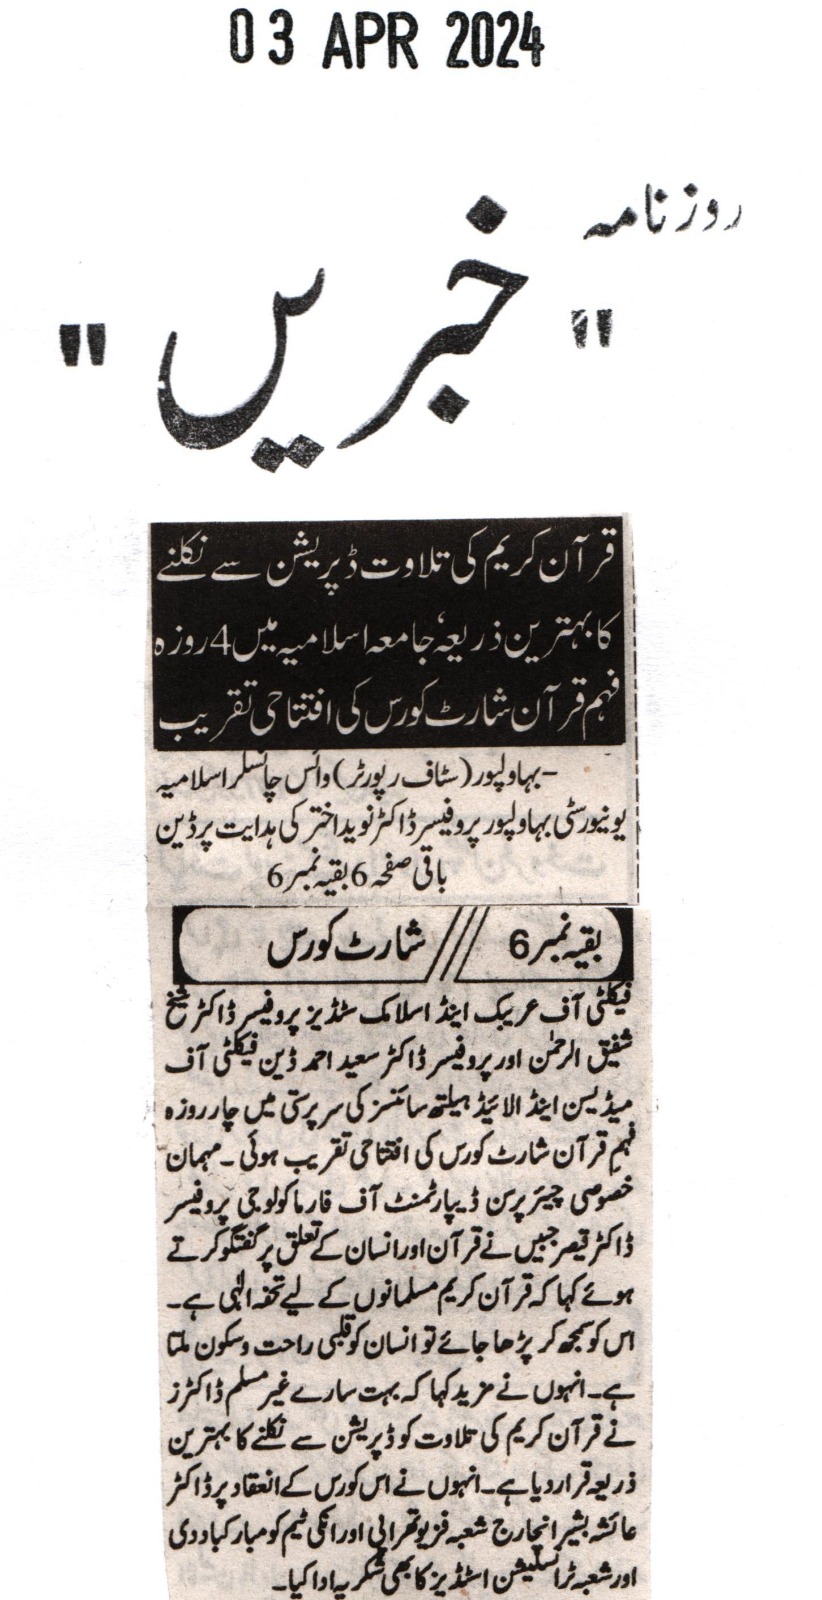 03 APR 2024
روزنامہ
"خبریں"
قرآن کریم کی تلاوت ڈپریشن سے نکلنے
کا بہترین ذریعہ، جامعہ اسلامیہ میں 4 روزہ
فہم قرآن شارٹ کورس کی افتتاحی تقریب
-بہاولپور (سٹاف رپورٹر) وائس چانسلر اسلامیہ
یونیورسٹی بہاولپور پروفیسر ڈاکٹر نوید اختر کی ہدایت پر ڈین
باقی صفحہ 6 بقیہ نمبر 6
بقیہ نمبر 6 /// شارٹ کورس
فیکلٹی آف عریبک اینڈ اسلامک سٹڈیز پروفیسر ڈاکٹر شیخ
شفیق الرحمٰن اور پروفیسر ڈاکٹر سعید احمد ڈین فیکلٹی آف
میڈیسن اینڈ الائیڈ ہیلتھ سائنسز کی سرپرستی میں چار روزہ
فہم قرآن شارٹ کورس کی افتتاحی تقریب ہوئی۔ مہمان
خصوصی چیئر پرسن ڈیپارٹمنٹ آف فارماکولوجی پروفیسر
ڈاکٹر قیصر جبیں نے قرآن اور انسان کے تعلق پر گفتگو کرتے
ہوئے کہا کہ قرآن کریم مسلمانوں کے لیے تحفہ الٰہی ہے۔
اس کو سمجھ کر پڑھا جائے تو انسان کو قلبی راحت وسکون ملتا
ہے۔ انہوں نے مزید کہا کہ بہت سارے غیر مسلم ڈاکٹرز
نے قرآن کریم کی تلاوت کو ڈپریشن سے نکلنے کا بہترین
ذریعہ قرار دیا ہے۔ انہوں نے اس کورس کے انعقاد پر ڈاکٹر
عائشہ بشیر انچارج شعبہ فزیوتھراپی اور انکی ٹیم کو مبارکباد دی
اور شعبہ ٹرانسلیشن اسٹڈیز کا بھی شکریہ ادا کیا۔